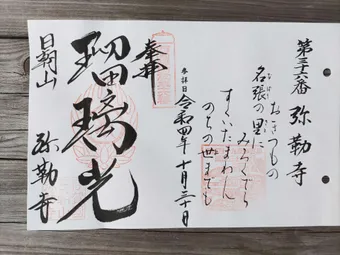 第三十六番 弥勒寺
おきつもの
名張の里に
みろくでら
すくいたまわん
のちの世までも
参拝日 令和四年十月二十日
奉拝
瑠璃光
日朝山 弥勒寺